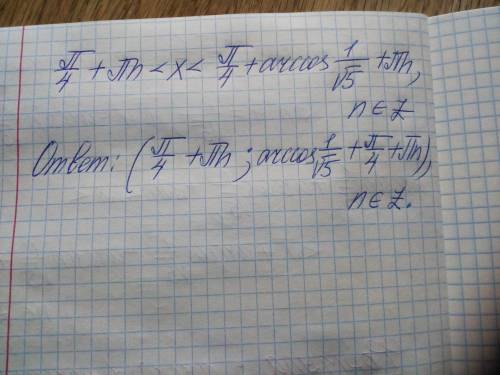 π/4 + πn < x < π/4 + arccos 1/√5 + πn,
n ∈ Z
Ответ: (π/4 + πn ; arccos 1/√5 + π/4 + πn),
n ∈ Z.